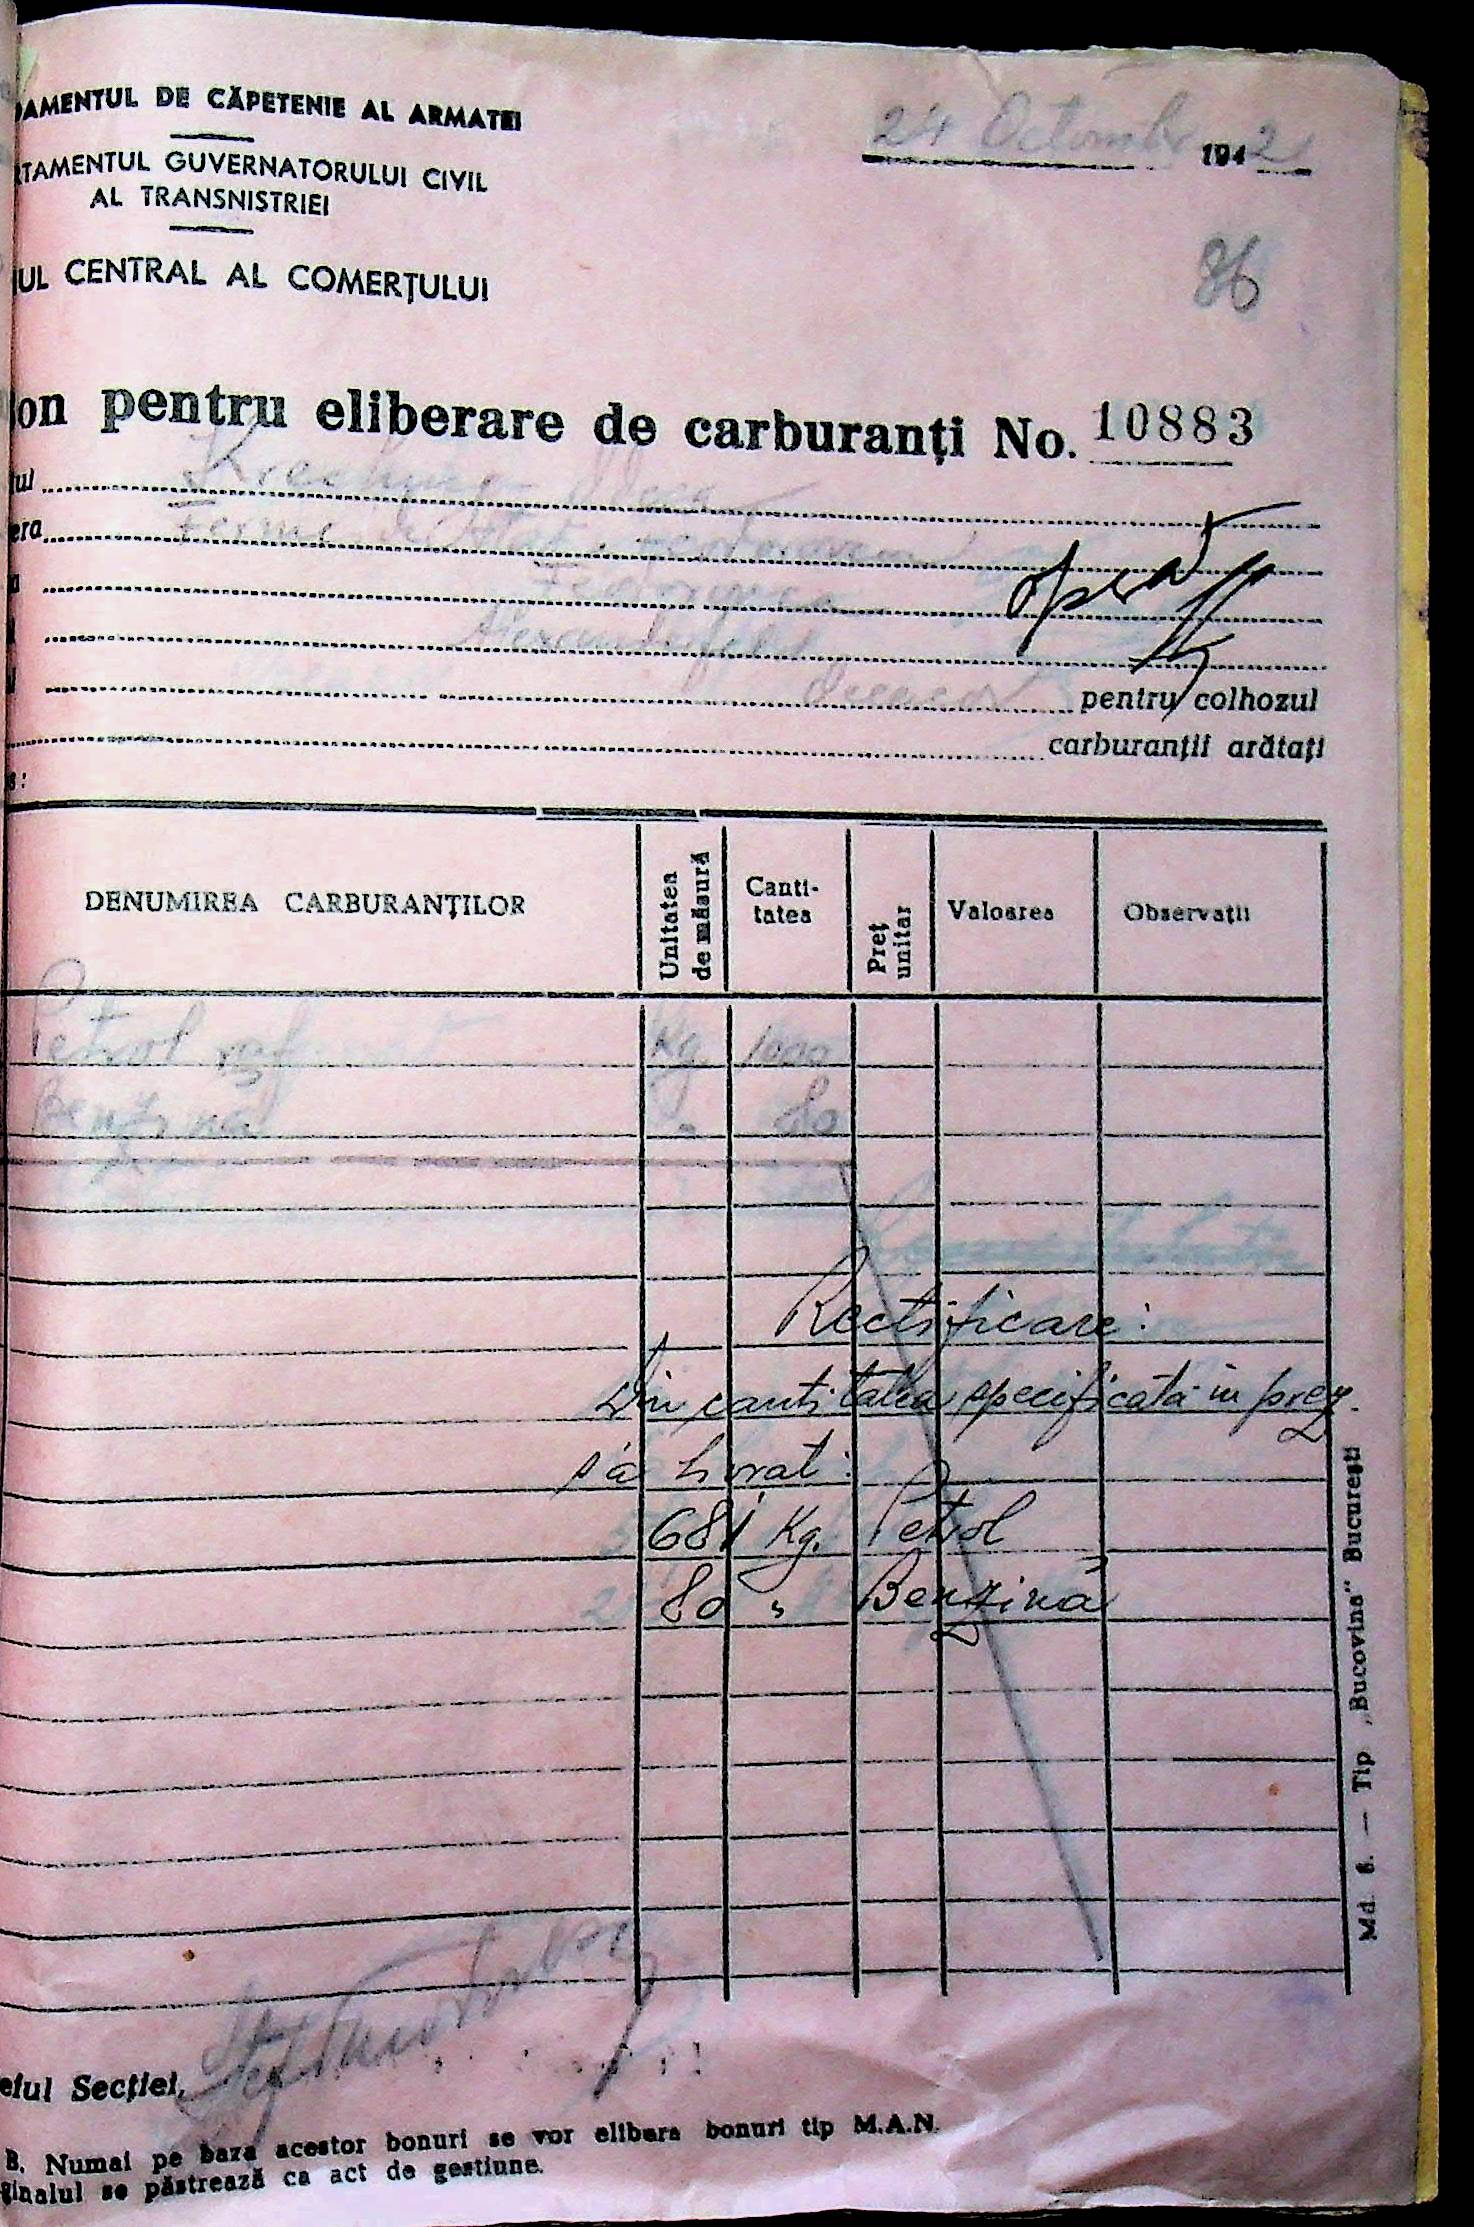 DAMENTUL DE CĂPETENIE AL ARMATEI
RTAMENTUL GUVERNATORULUI CIVIL
AL TRANSNISTRIEI
UL CENTRAL AL COMERȚULUI
24 Octombr 1942
86
on pentru eliberare de carburanți No. 10883
ul
era
operat
pentru colhozul
carburanții arătați
s:
DENUMIREA CARBURANȚILOR
Unitatea de măsură
Canti-
tatea
Preț unitar
Valoarea
Observații
Petrol Kg 1000
Benzină " 80
Rectificare:
Din cantitatea specificată în prez.
s'a livrat:
681 Kg. Petrol
80 " Benzină
Md. 6. — Tip „Bucovina" București
eful Secției,
B. Numai pe baza acestor bonuri se vor elibera bonuri tip M.A.N.
ginalul se păstrează ca act de gestiune.